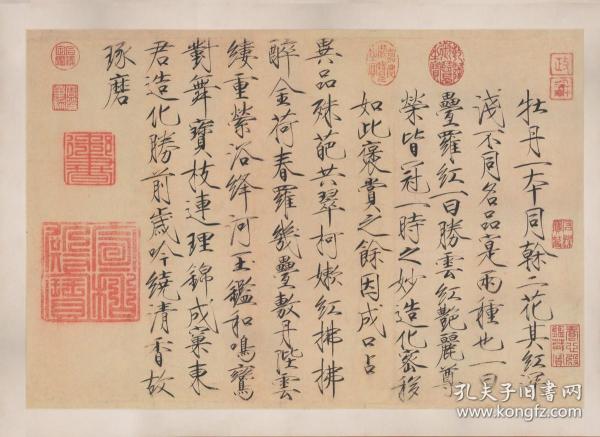 牡丹一本同幹二花其紅深
淺不同名品寔兩種也一曰
疊羅紅一曰勝雲紅艷麗尊
榮皆冠一時之妙造化密移
如此褒賞之餘因成口占
異品殊葩共翠柯嫩紅拂拂
醉金荷春羅幾疊敷丹陛雲
縷重縈浴絳河玉鑑和鳴鸞
對舞寶枝連理錦成窠東
君造化勝前歲吟繞清香故
琢磨
孔夫子旧书网
www.kongfz.com